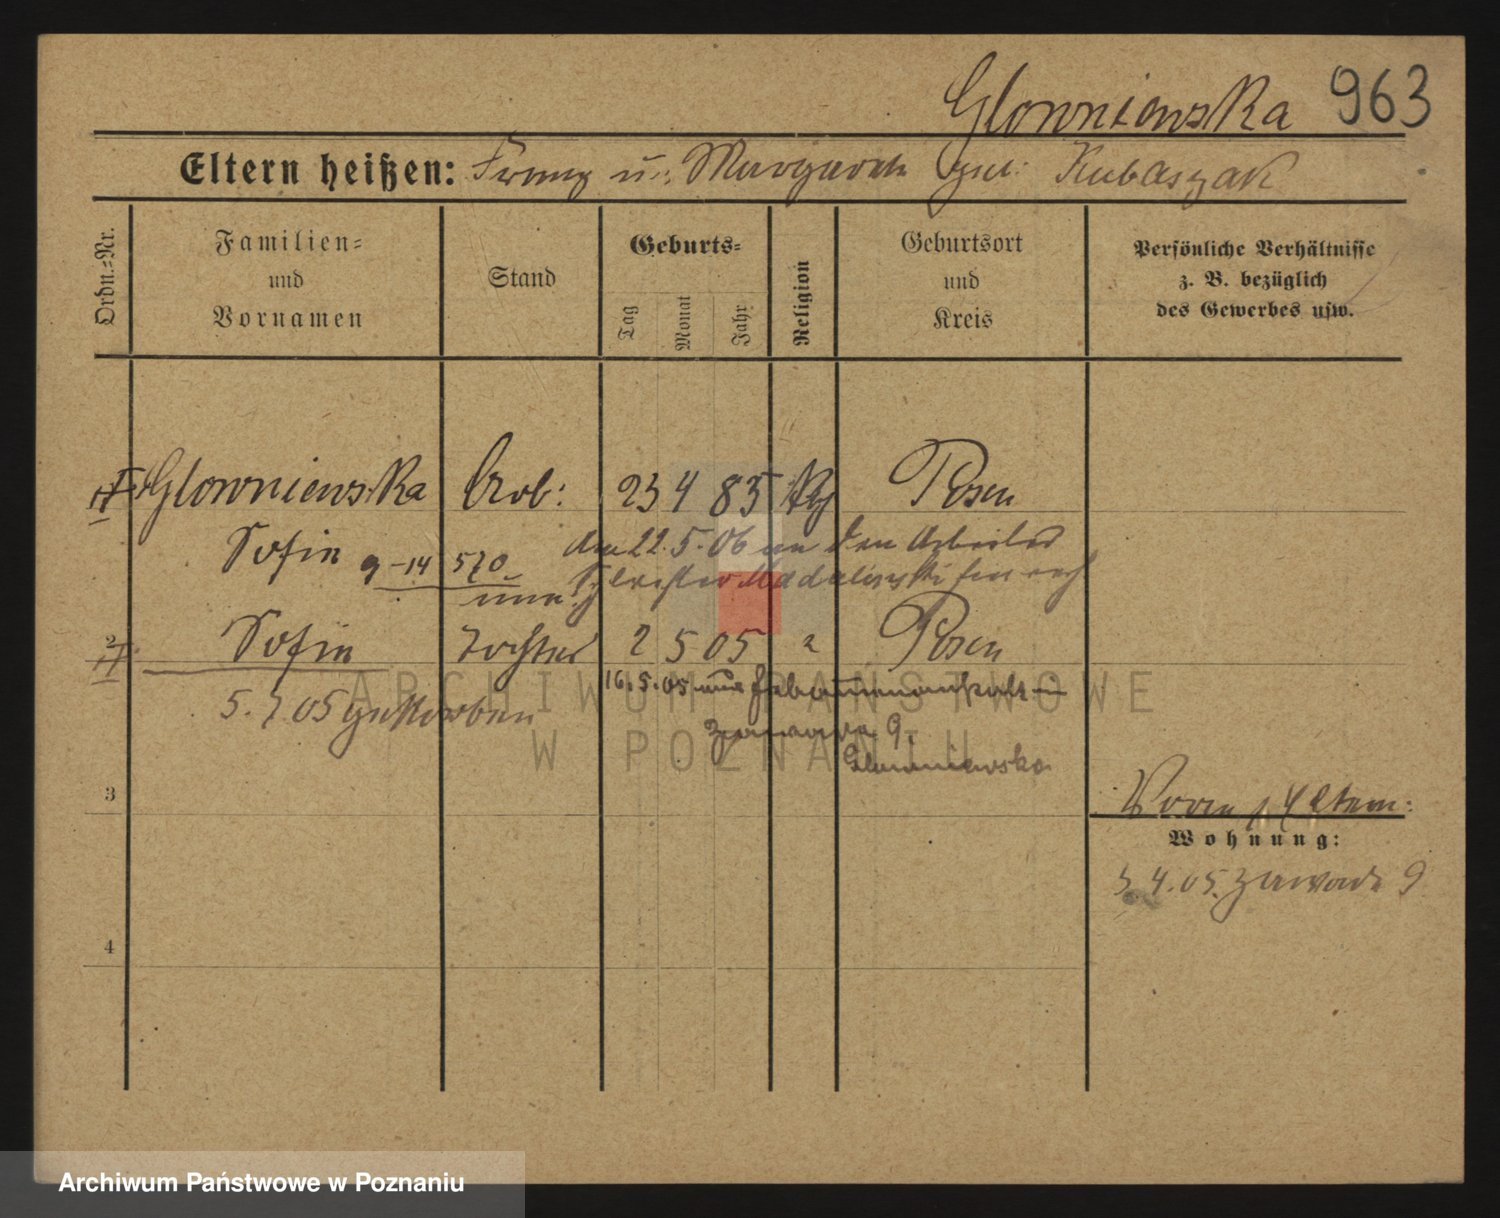 Glowniewska 963
Eltern heißen: Franz u. Margareth geb: Kubaszak
Ordn.=Nr.
Familien=
und
Vornamen
Stand
Geburts=
Tag
Monat
Jahr
Religion
Geburtsort
und
Kreis
Persönliche Verhältnisse
z. B. bezüglich
des Gewerbes usw.
Glowniewska Arb: 23 4 83 Posen
Sofie 9-14 570
Am 22.5.06 an den Arbeiter
Madalinski
2 Sofie Tochter 2 5 05 Posen
16.5.05 aus Hebammenanstalt
5.7 05 gestorben
Zawade 9,
Glowniewska
3
Eltern:
Wohnung:
4.05. Zawade 9
4
ARCHIWUM PAŃSTWOWE
W POZNANIU
Archiwum Państwowe w Poznaniu